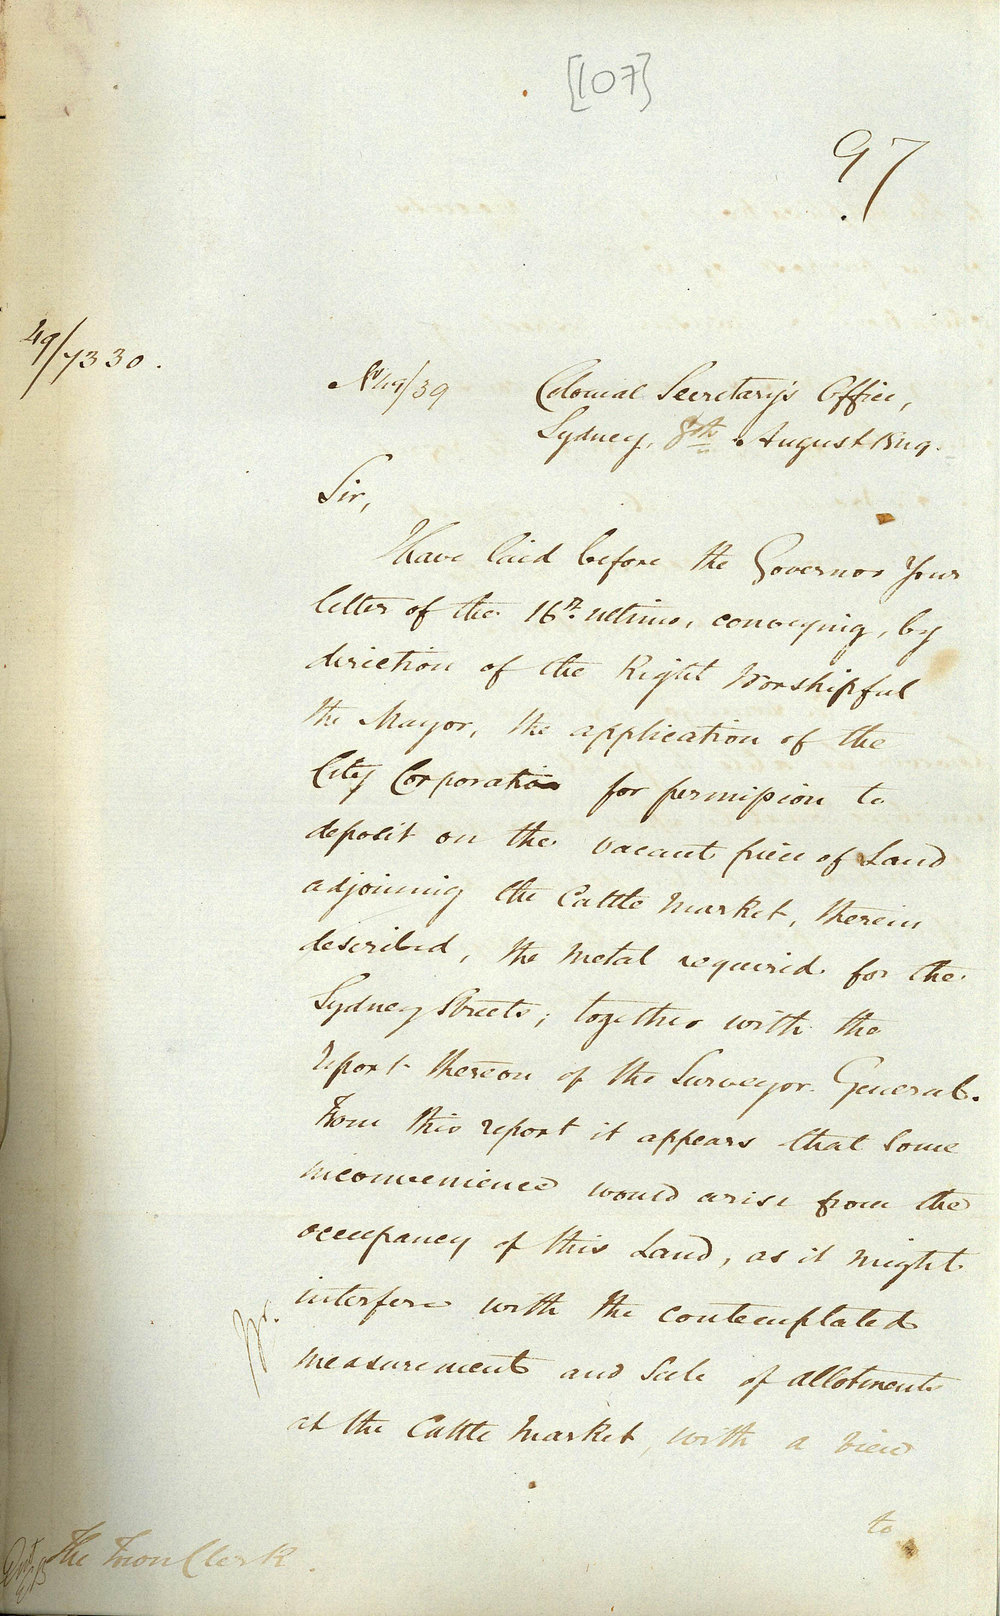 [107]
97
49/7330.
No 49/39
Colonial Secretary's Office,
Sydney, 8th August 1849.
Sir,
Have laid before the Governor Your
letter of the 16th. ultimo, conveying, by
direction of the Right Worshipful
the Mayor, the application of the
City Corporation for permission to
deposit on the vacant piece of Land
adjoining the Cattle Market, therein
described, the metal required for the
Sydney Streets; together with the
report thereon of the Surveyor General.
From this report it appears that some
inconvenience would arise from the
occupancy of this Land, as it might
interfere with the contemplated
measurement and Sale of allotments
at the Cattle Market, with a view
to
The Town Clerk.